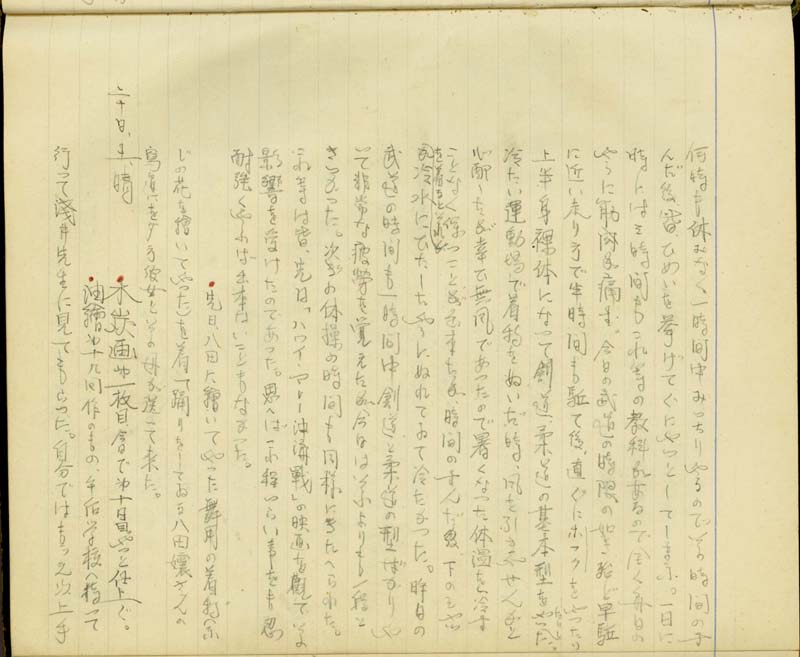 何時も休みなく一時間中みっちりやるのでその時間のす
んだ後皆、ひめいを挙げてぐにやっとしてしまふ。一日に
時には三時間もこれ等の教科があるので全く毎日の
やうに筋肉が痛む。今日の武道の時限の如き殆ど早駈
に近い走り方で半時間も駈て後、直ぐにホフクをやったり
上半身裸体になって剣道、柔道の基本型をやった。
冷たい運動場で着物をぬいだ時、風を引きやせんかと
心配したが幸ひ無風であったので暑くなった体温を冷す
ことなく保つことが出来たが、時間のすんだ後、下のシャ
冷水にひたしたやうにぬれてゐて冷たかった。昨日の
武道の時間も一時間中剣道と柔道の型ばかりや
って非常な疲労を覚えたが今日はそれよりも一程と
きつかった。次の体操の時間も同様にきたへられた。
これ等は皆、先日「ハワイ・マレー沖海戦」の映画を観て
影響を受けたのであった。思へばこれ程つらい事をも忍
耐強くやれば出来ないこともなかった。
先日、八田に繪いてやった舞用の着物(
じの花を描いてやった)を着て踊りをしてゐる八田嬢さんの
寫眞にを夕方彼女とその母が送って来た。
二十日、土、晴
木炭画第一枚目今日で第十日目やっと仕上ぐ。
油繪第十九回作のもの、午后学校へ持って
行って淺井先生に見てもらった。自分ではもう之以上手